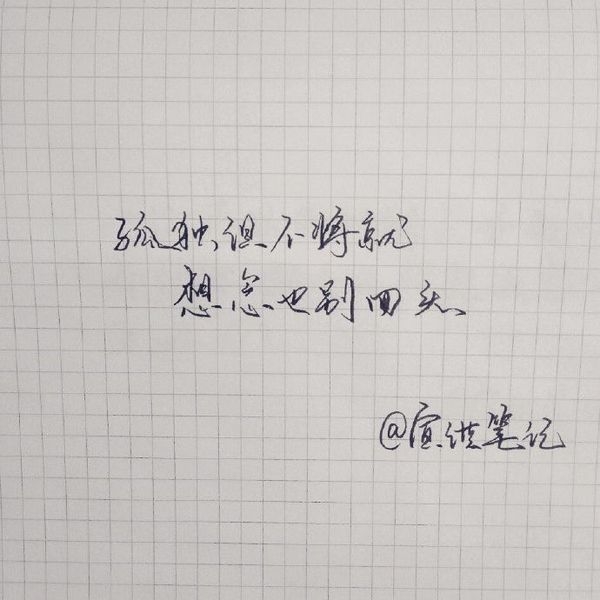 孤独但不将就
想念也别回头
@宣洪笔记